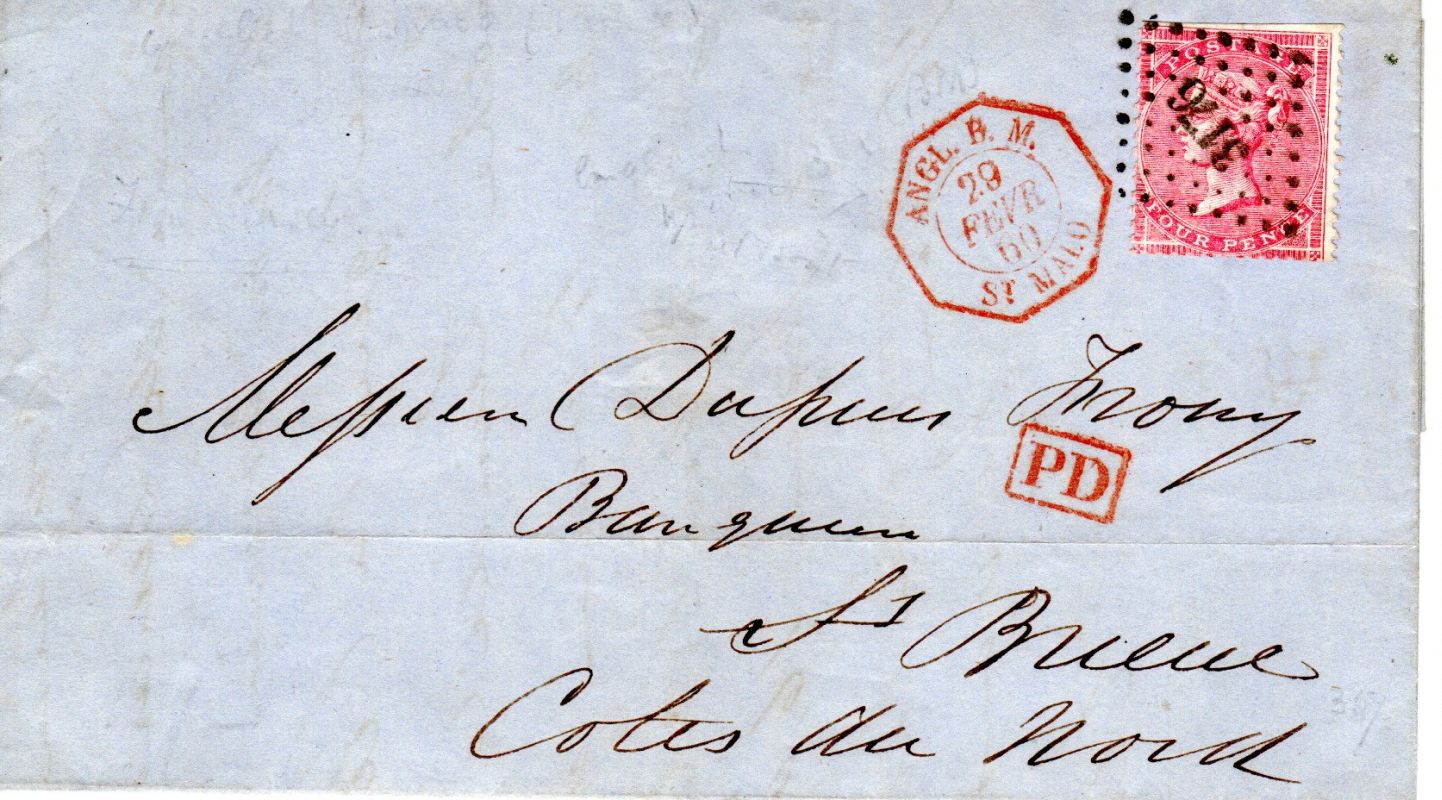 POSTAGE
3176
FOUR PENCE
ANGL. B. M.
29
FEVR
60
ST MALO
Messieu Dupuis Frony
PD
Banquier
St Brieuc
Cotes du Nord